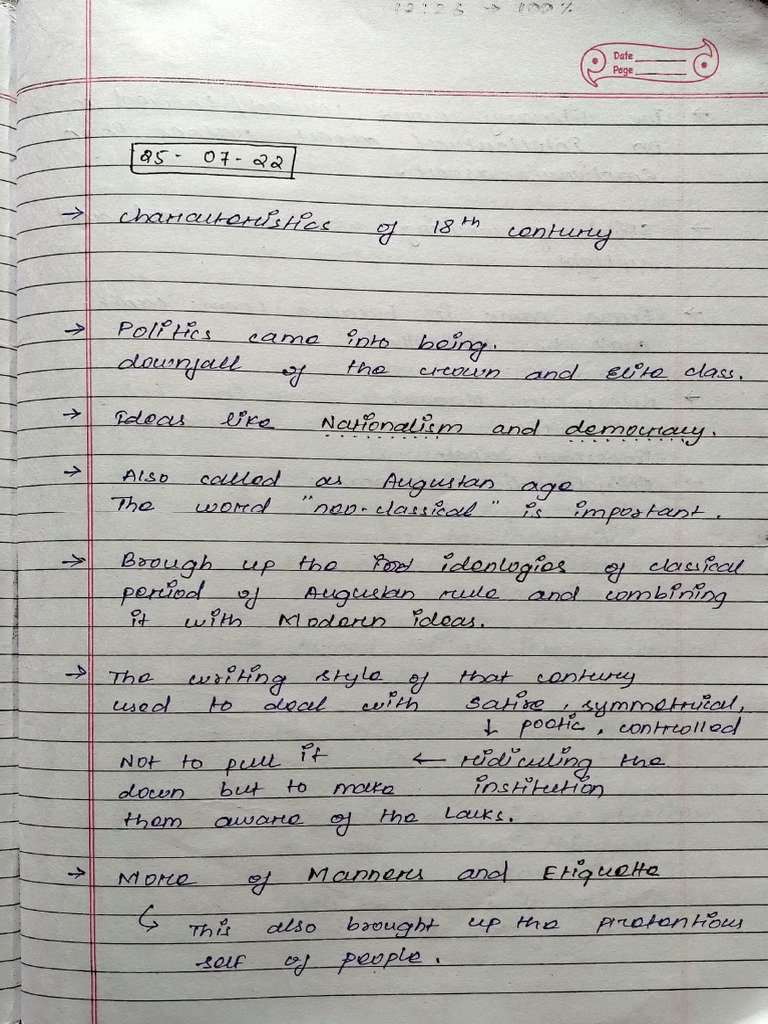 Date
Page
25-07-22
→ characteristics of 18th century
→ Politics came into being.
downfall of the crown and Elite class.
→ Ideas like Nationalism and democracy.
→ Also called as Augustan age
The word "neo-classical" is important.
→ Brough up the ideologies of classical
period of Augustan rule and combining
it with Modern ideas.
→ The writing style of that century
used to deal with satire, symmetrical,
↓ poetic, controlled
Not to pull it ← ridiculing the
down but to make institution
them aware of the Lacks.
→ More of Manners and Etiquette
↳ This also brought up the pretentious
self of people.